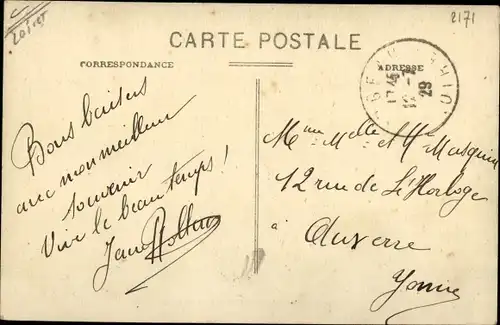 Loiret
2171
CARTE POSTALE
CORRESPONDANCE
ADRESSE
17 45
29
Bons baisers
avec mon meilleur
souvenir
Vive le beau temps !
Mme Melle et Mr Masquin
12 rue de L'Horloge
à
Auxerre
Yonne